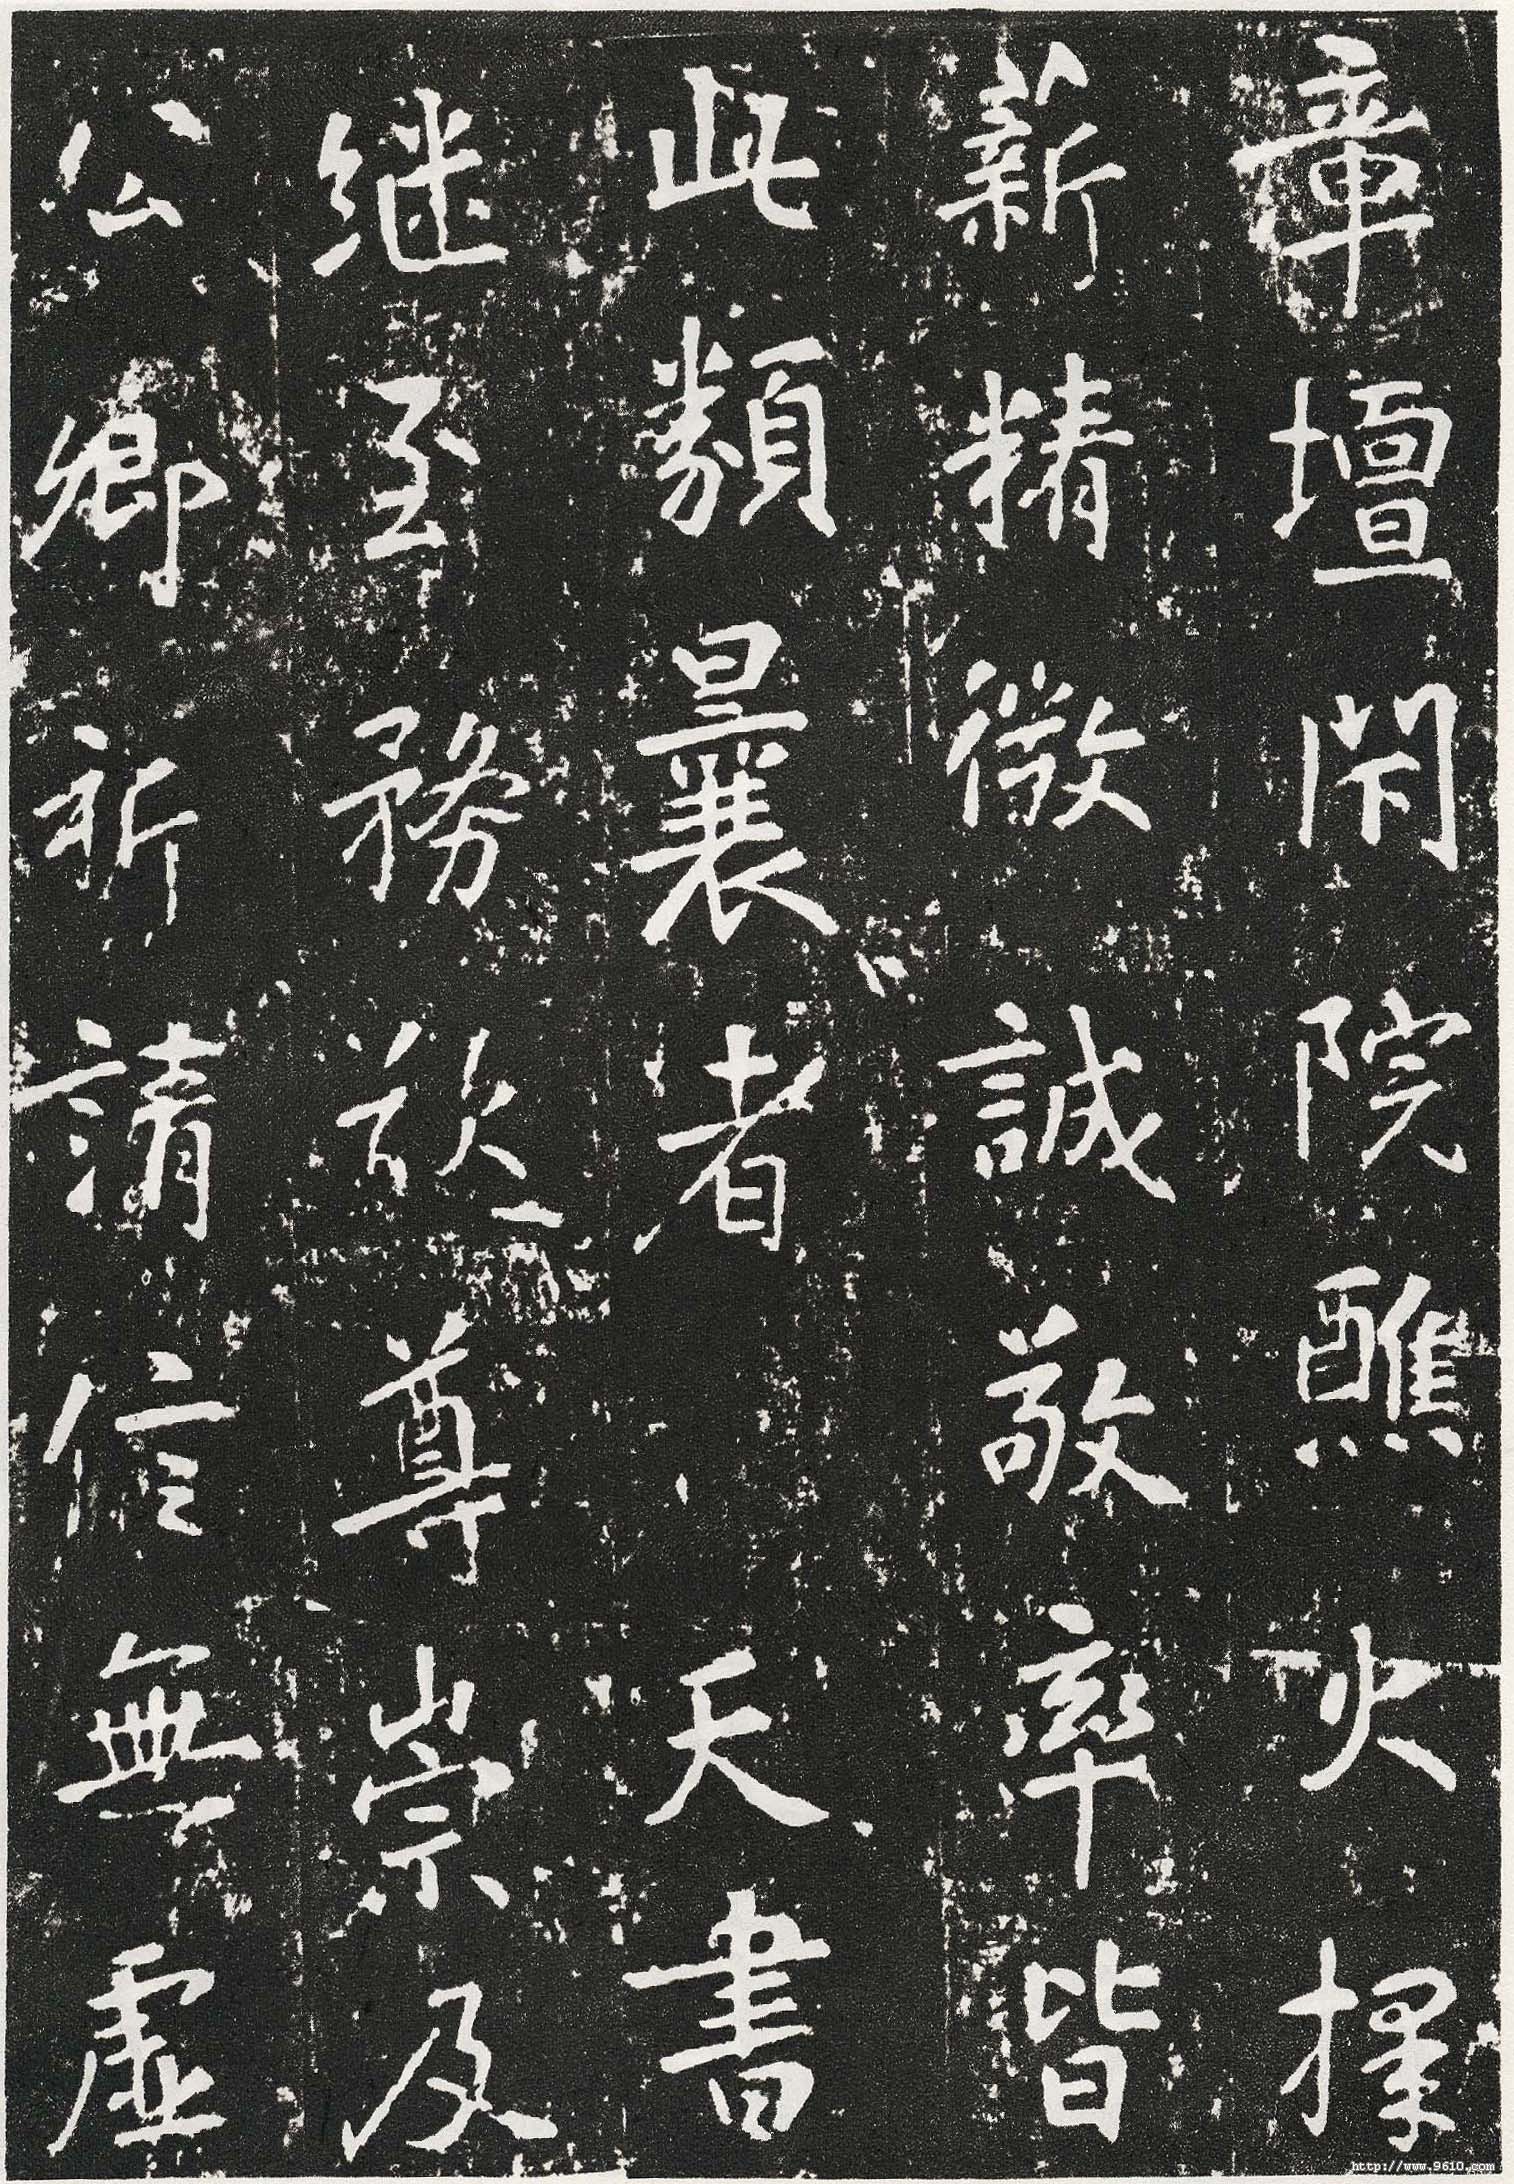 章壇閇院醮火揉
薪精徵誠敬率皆
此類曩者 天書
継至務欲尊崇及
公卿祈請信無虛
http://www.9610.com